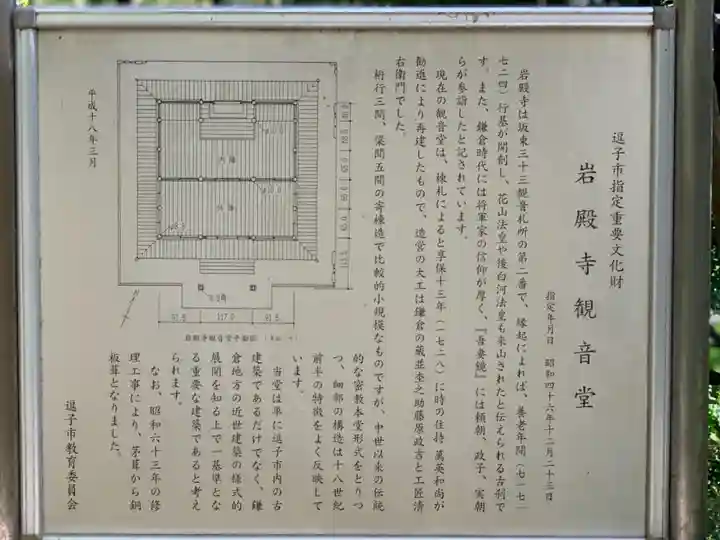 逗子市指定重要文化財
岩殿寺観音堂
指定年月日 昭和四十六年十二月二十三日
岩殿寺は坂東三十三観音札所の第二番で、縁起によれば、養老年間(七一七〜
七二四)行基が開創し、花山法皇や後白河法皇も来山されたと伝えられる古刹で
す。また、鎌倉時代には将軍家の信仰が厚く、『吾妻鏡』には頼朝、政子、実朝
らが参詣したと記されています。
現在の観音堂は、棟札によると享保十三年(一七二八)に時の住持 萬英和尚が
勧進により再建したもので、造営の大工は鎌倉の蔵並杢之助藤原政方と工匠清
右衛門でした。
桁行三間、梁間五間の寄棟造で比較的小規模なものですが、中世以来の伝統
的な密教本堂形式をとりつ
つ、細部の構造は十八世紀
前半の特徴をよく反映して
います。
当堂は単に逗子市内の古
建築であるだけでなく、鎌
倉地方の近世建築の様式的
展開を知る上で一基準とな
る重要な建築であると考え
られます。
なお、昭和六十三年の修
理工事により、茅葺から銅
板葺となりました。
逗子市教育委員会
平成十八年三月
内陣
外陣
岩殿寺観音堂平面図